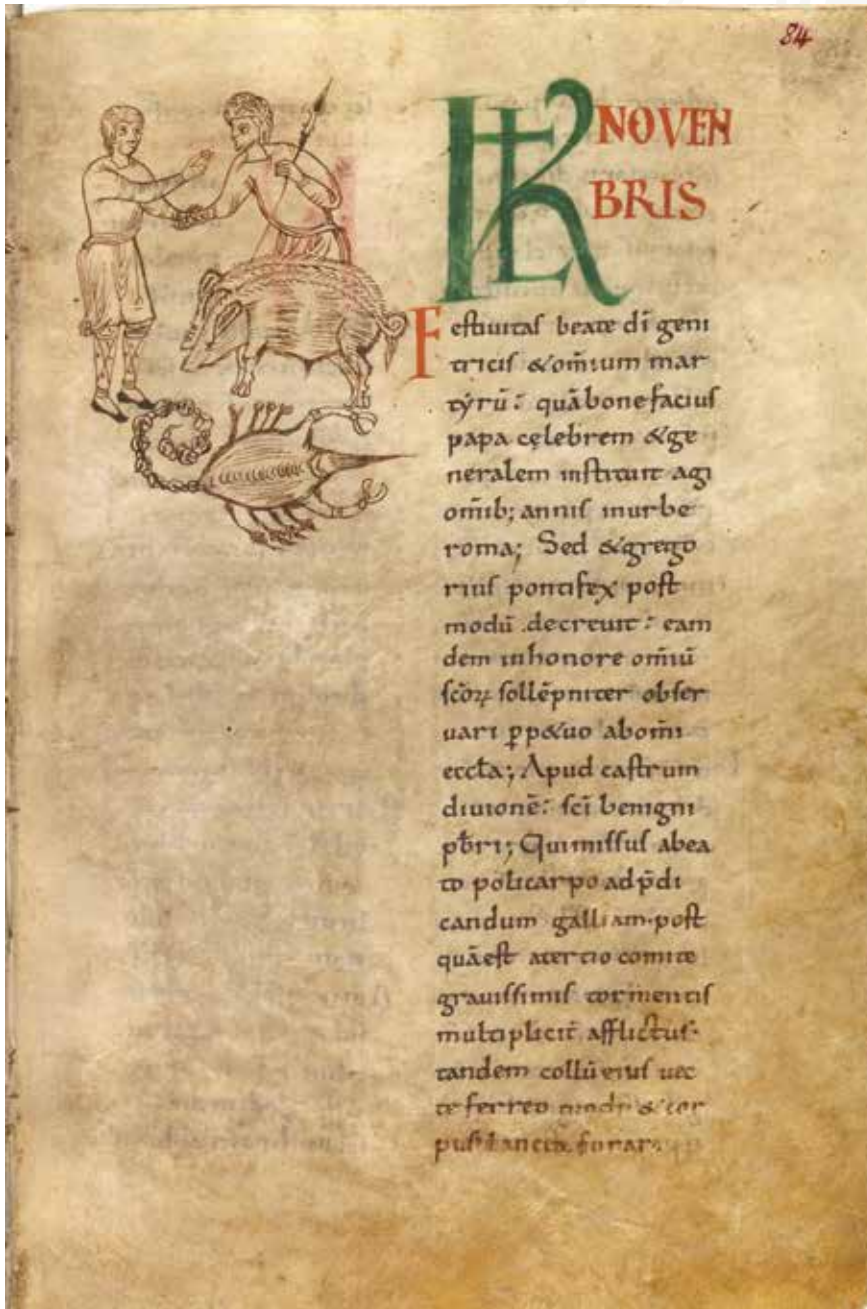 84
KL NOVEN
BRIS
Festiuitas beate dī geni
tricis &om̄ium mar
tẏrū: quā bonefacius
papa cęlebrem &ge
neralem instituit agi
om̄ib; annis inurbe
roma; Sed &grego
rius pontifex post
modū decreuit: eam
dem inhonore om̄iū
sc̄oꝝ sollēpniter obser
uari ꝑp&uo abom̄i
eccła; Apud castrum
diuionē: sc̄i benigni
pb̄ri; Qui missus abea
to policarpo ad p̄di
candum galliam·post
quā est atertio comite
grauissimis tormentis
multiplicit̄ afflictus·
tandem collū eius uec
te ferreo &cor
pus lancea forar